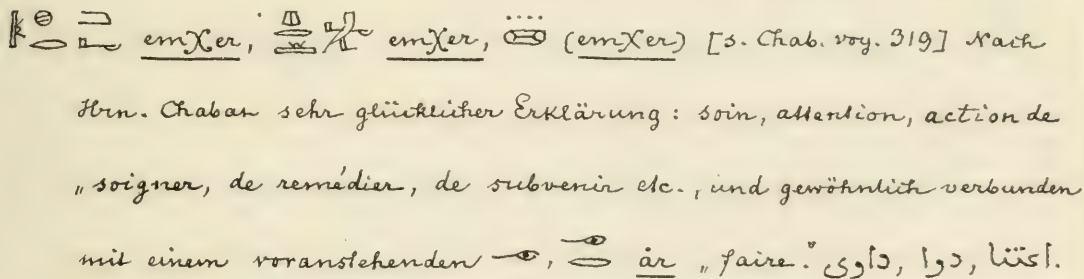 emχer, emχer, (emχer) [s. Chab. voy. 319] Nach
Hrn. Chabas sehr glücklicher Erklärung: soin, attention, action de
„soigner, de remédier, de subvenir etc., und gewöhnlich verbunden
mit einem voranstehenden , ȧr „faire.“ داوى, دوا, اعتنا.